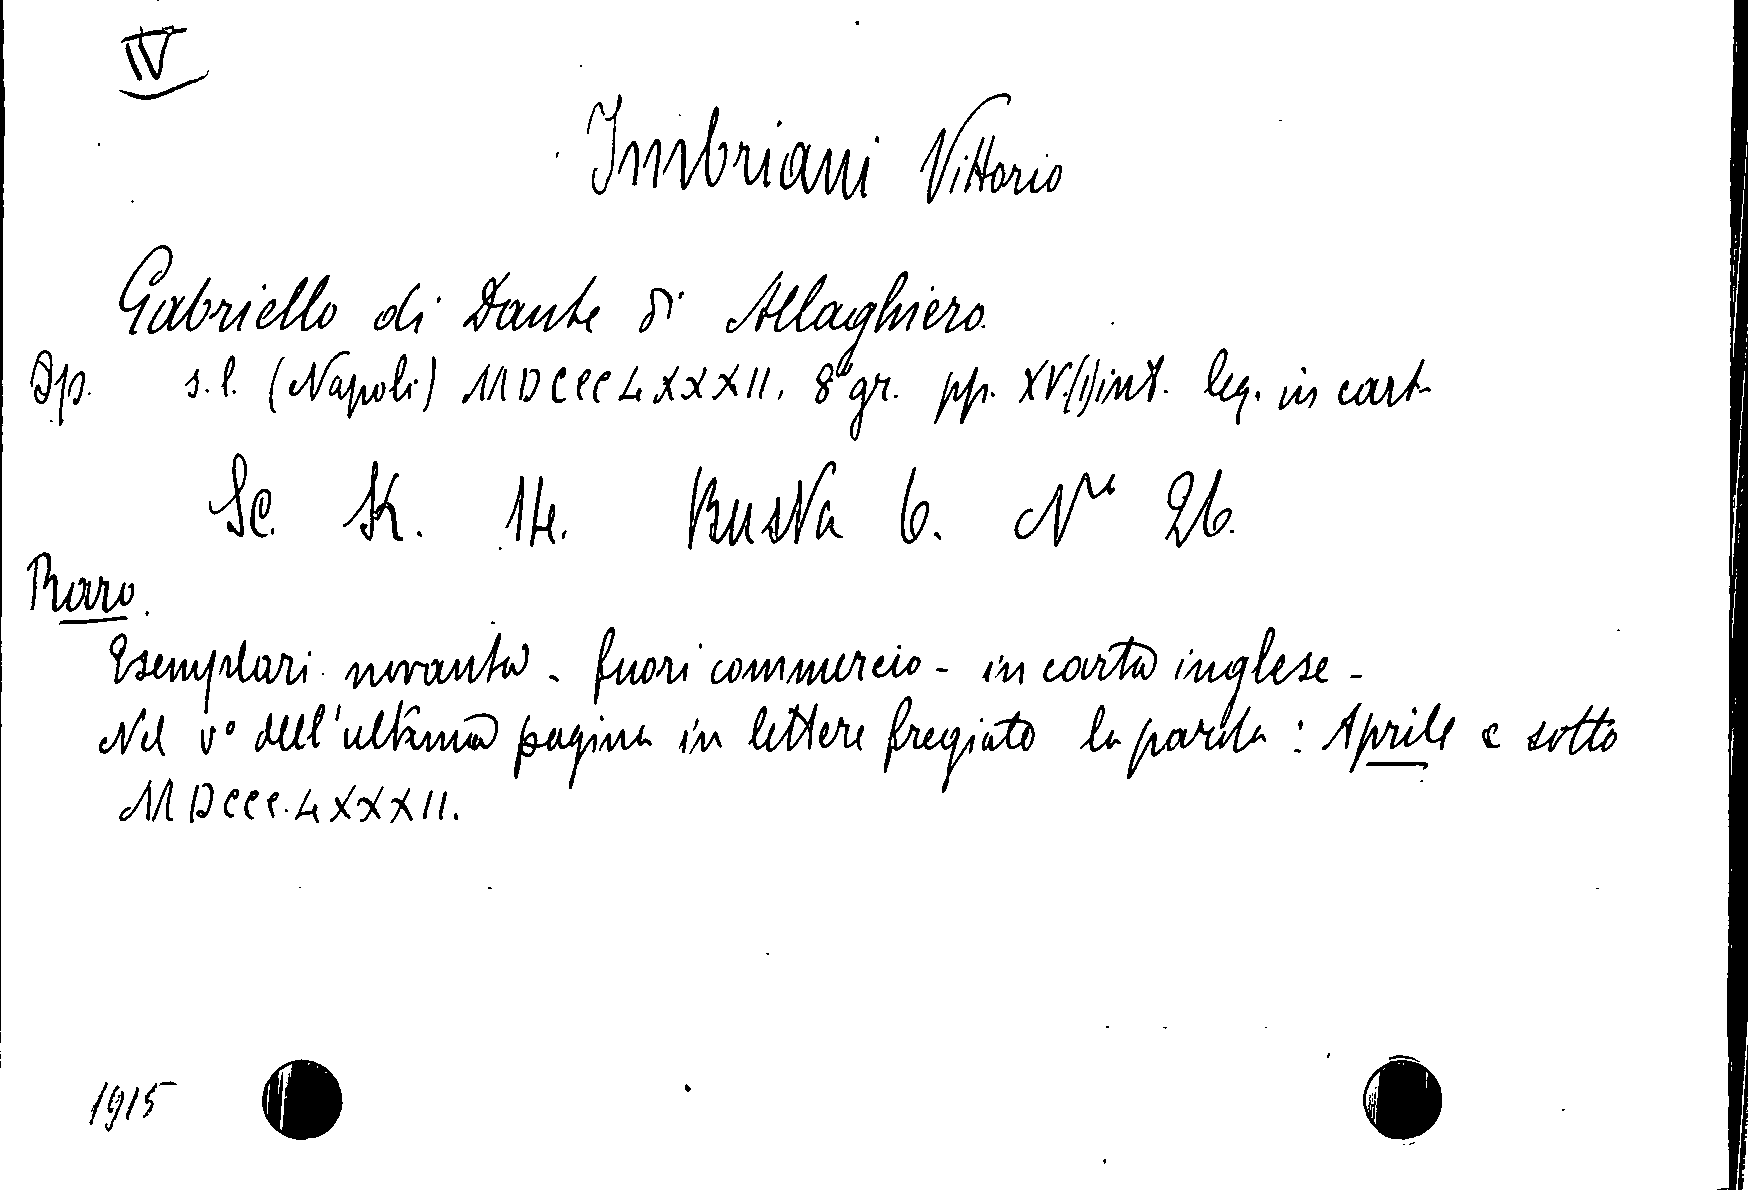 IV
Imbriani Vittorio
Gabriello di Dante di Allaghiero.
Op. s.l. (Napoli) MDCCCLXXXII. 8° gr. pp. XV.(1) int. leg. in cart.
Sc. K. 14. Busta 6. N° 26.
Raro.
Esemplari novanta - fuori commercio - in carta inglese -
Nel v° dell'ultima pagina in lettere fregiate la parola: Aprile e sotto
MDCCC.LXXXII.
1915